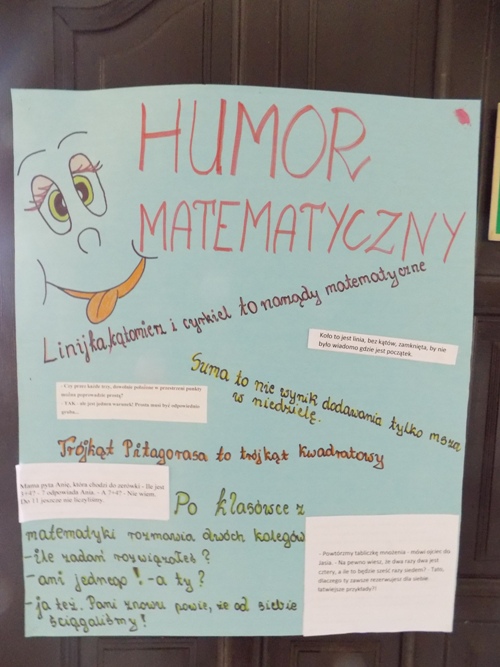 HUMOR
MATEMATYCZNY
Linijka, kątomierz i cyrkiel to narządy matematyczne
Koło to jest linia, bez kątów, zamknięta, by nie
było wiadomo gdzie jest początek.
Suma to nie wynik dodawania tylko msza
w niedzielę.
- Czy przez każde trzy, dowolnie położone w przestrzeni punkty
można poprowadzić prostą?
- TAK - ale jest jeden warunek! Prosta musi być odpowiednio
gruba...
Trójkąt Pitagorasa to trójkąt kwadratowy
Mama pyta Anię, która chodzi do zerówki - Ile jest
3+4? - 7 odpowiada Ania. - A 7+4? - Nie wiem.
Do 11 jeszcze nie liczyliśmy.
Po klasówce z
matematyki rozmawia dwóch kolegów
- ile zadań rozwiązałeś?
- ani jednego! - a ty?
- ja też. Pani znowu powie, że od siebie
ściągaliśmy!
- Powtórzymy tabliczkę mnożenia - mówi ojciec do
Jasia. - Na pewno wiesz, że dwa razy dwa jest
cztery, a ile to będzie sześć razy siedem? - Tato,
dlaczego ty zawsze rezerwujesz dla siebie
łatwiejsze przykłady?!